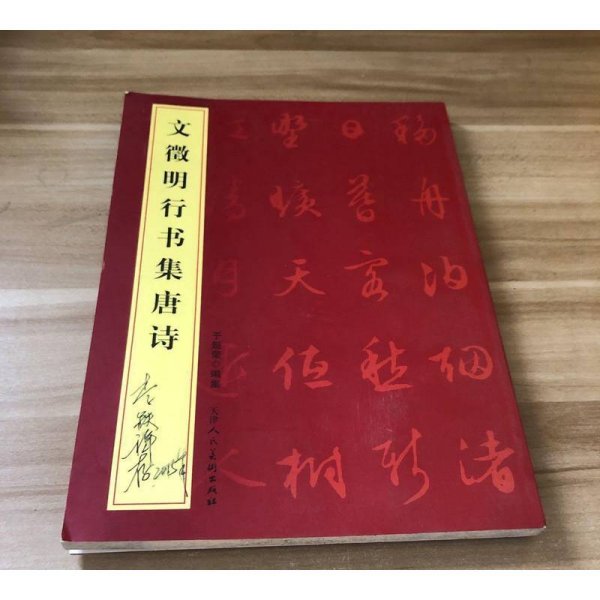 文徵明行书集唐诗
移舟泊烟渚
日暮客愁新
野曠天低樹
江清月近人
于魁荣◎编集
天津人民美術出版社